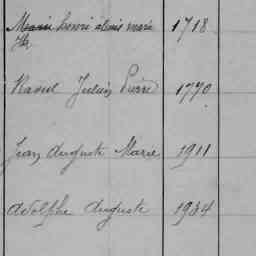 Marie henri alexis marie 1718
Raoul Julien Pierre 1770
Jean Auguste Marie 1911
Adolphe Auguste 1934